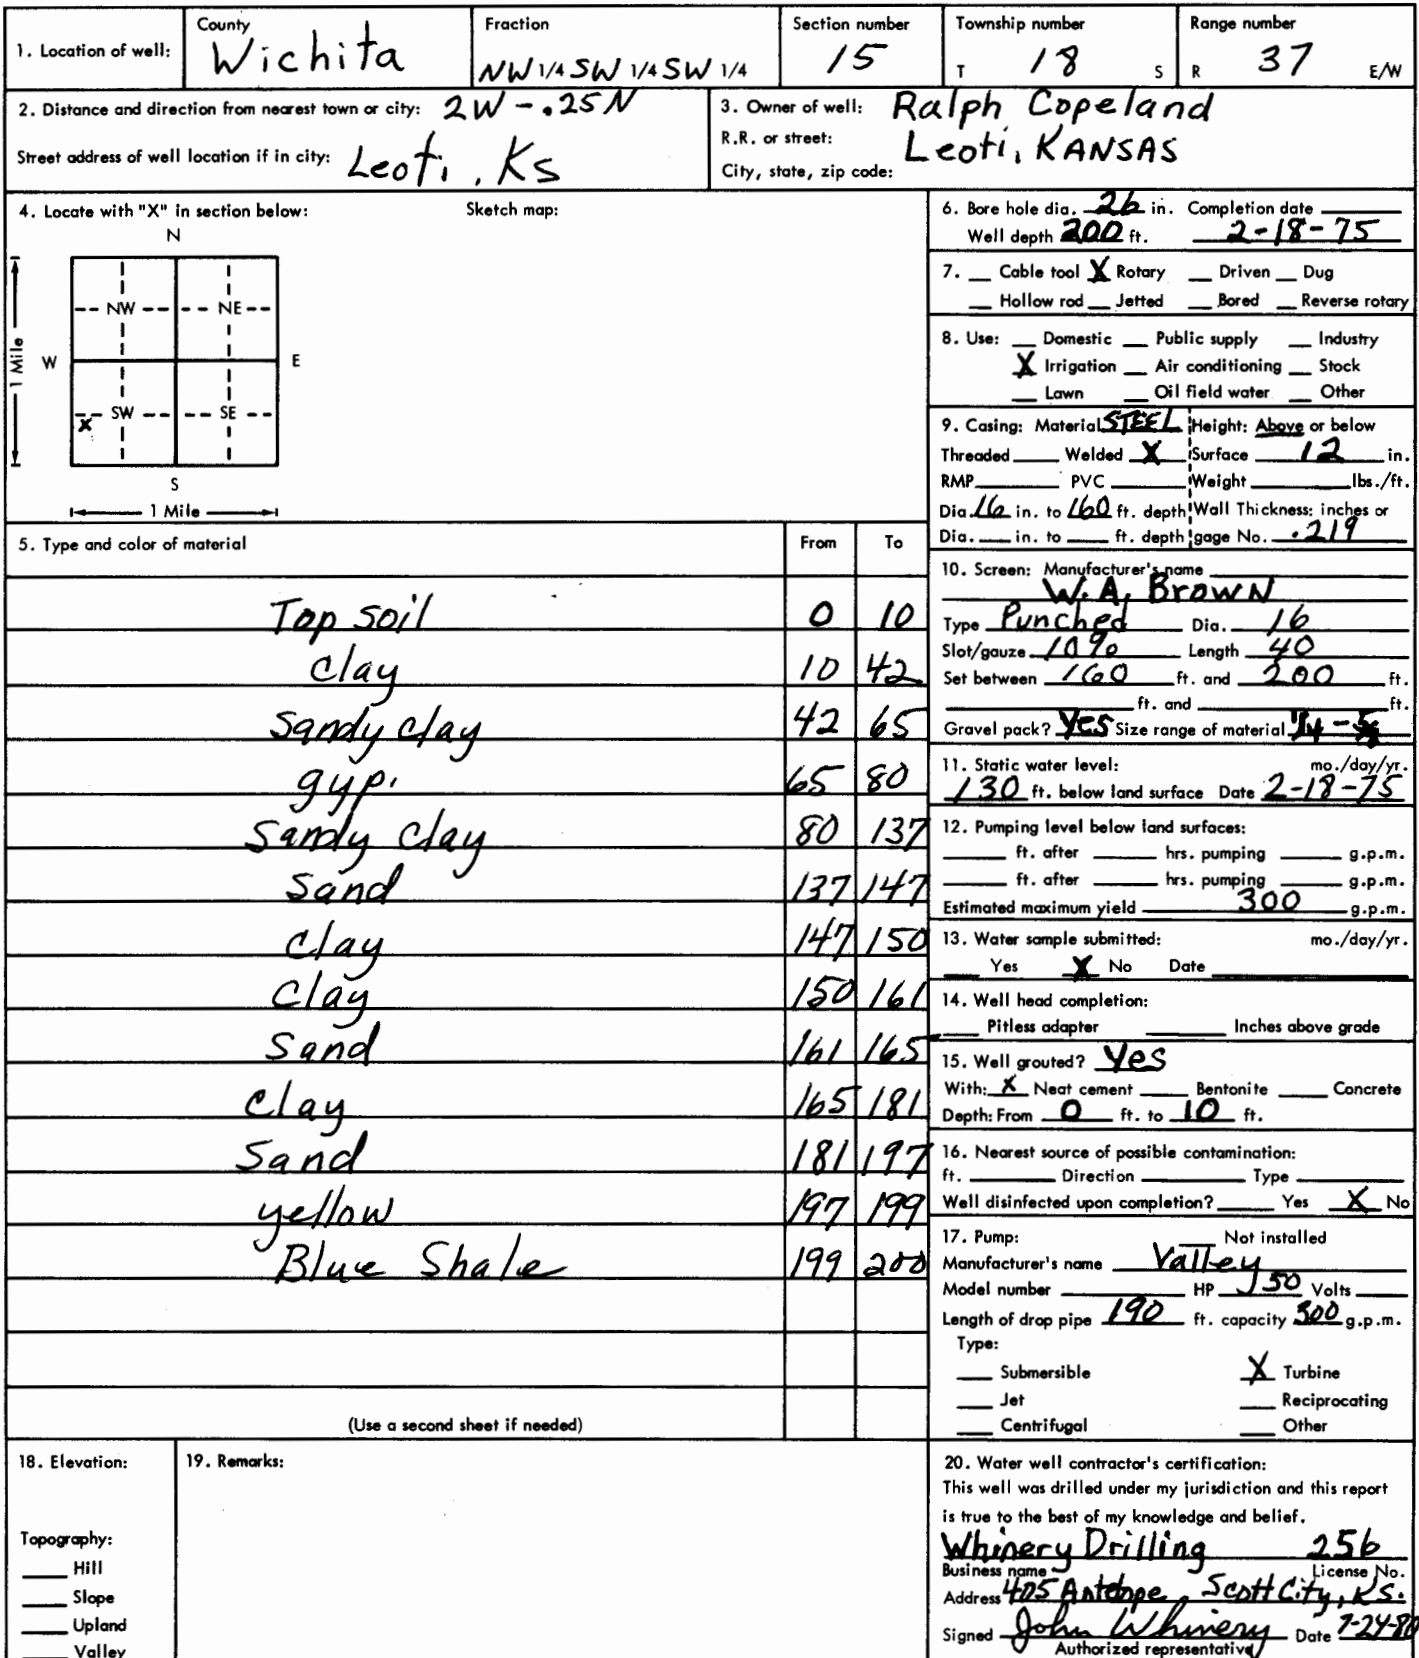 1. Location of well: County Wichita Fraction NW 1/4 SW 1/4 SW 1/4 Section number 15 Township number T 18 S Range number R 37 E/W
2. Distance and direction from nearest town or city: 2W-.25N
Street address of well location if in city: Leoti, Ks
3. Owner of well: Ralph Copeland
R.R. or street:
Leoti, KANSAS
City, state, zip code:
4. Locate with "X" in section below: Sketch map:
N
NW NE
W E
1 Mile
SW SE
X
S
1 Mile
5. Type and color of material From To
Top soil 0 10
clay 10 42
Sandy clay 42 65
gyp. 65 80
Sandy clay 80 137
Sand 137 147
clay 147 150
Clay 150 161
Sand 161 165
clay 165 181
Sand 181 197
yellow 197 199
Blue Shale 199 200
(Use a second sheet if needed)
6. Bore hole dia. 26 in. Completion date
Well depth 200 ft. 2-18-75
7. Cable tool X Rotary Driven Dug
Hollow rod Jetted Bored Reverse rotary
8. Use: Domestic Public supply Industry
X Irrigation Air conditioning Stock
Lawn Oil field water Other
9. Casing: Material STEEL Height: Above or below
Threaded Welded X Surface 12 in.
RMP PVC Weight lbs./ft.
Dia. 16 in. to 160 ft. depth Wall Thickness: inches or
Dia. in. to ft. depth gage No. .219
10. Screen: Manufacturer's name
W. A. Brown
Type Punched Dia. 16
Slot/gauze 10% Length 40
Set between 160 ft. and 200 ft.
ft. and ft.
Gravel pack? Yes Size range of material
11. Static water level: mo./day/yr.
130 ft. below land surface Date 2-18-75
12. Pumping level below land surfaces:
ft. after hrs. pumping g.p.m.
ft. after hrs. pumping g.p.m.
Estimated maximum yield 300 g.p.m.
13. Water sample submitted: mo./day/yr.
Yes X No Date
14. Well head completion:
Pitless adapter Inches above grade
15. Well grouted? Yes
With: X Neat cement Bentonite Concrete
Depth: From 0 ft. to 10 ft.
16. Nearest source of possible contamination:
ft. Direction Type
Well disinfected upon completion? Yes X No
17. Pump: Not installed
Manufacturer's name Valley
Model number HP 50 Volts
Length of drop pipe 190 ft. capacity 300 g.p.m.
Type:
Submersible X Turbine
Jet Reciprocating
Centrifugal Other
18. Elevation:
Topography:
Hill
Slope
Upland
Valley
19. Remarks:
20. Water well contractor's certification:
This well was drilled under my jurisdiction and this report
is true to the best of my knowledge and belief.
Whinery Drilling 256
Business name License No.
Address 405 Antelope, Scott City, KS.
Signed John Whinery Date 7-24-80
Authorized representative